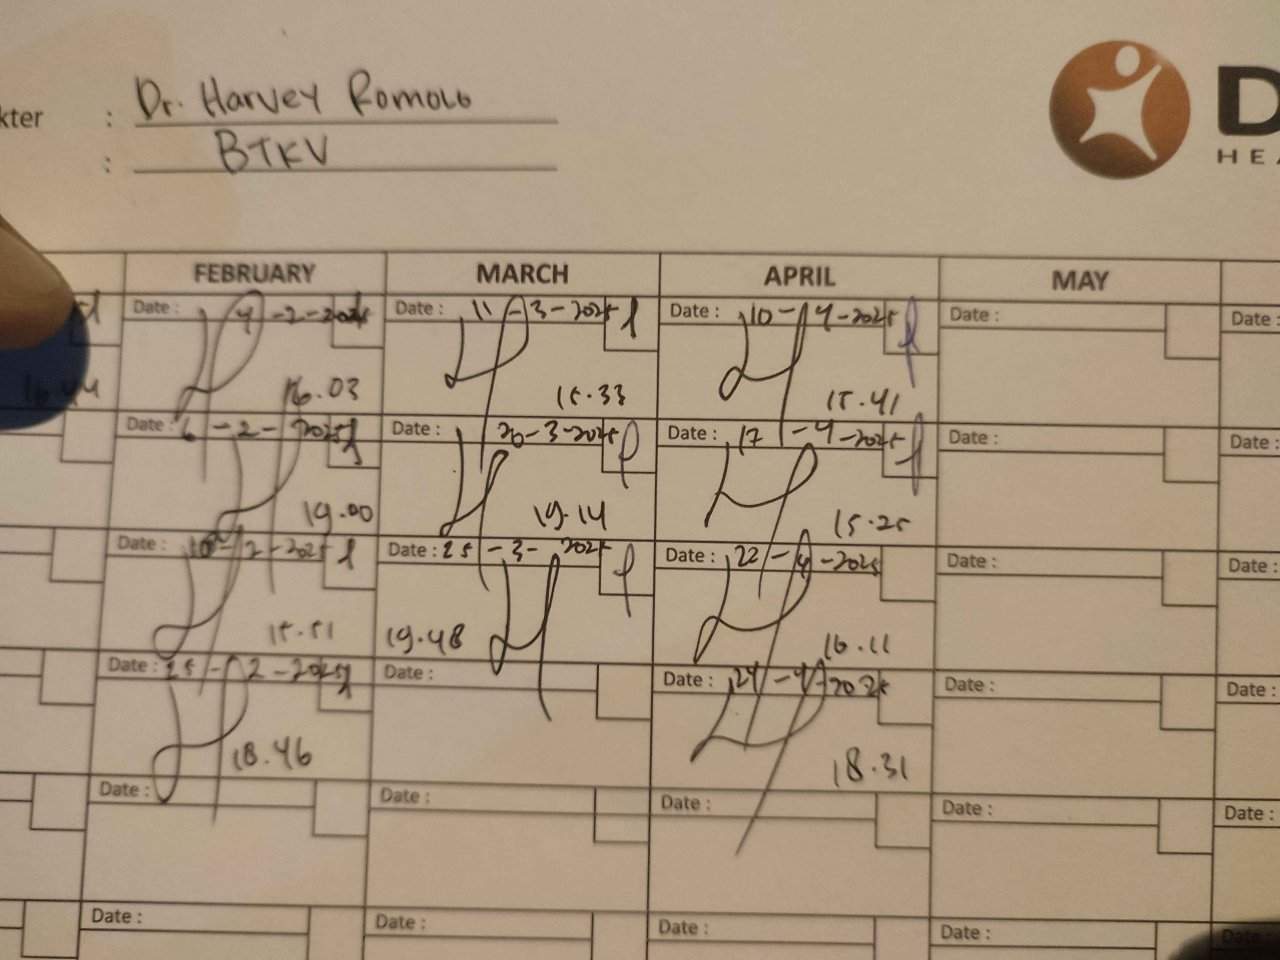 kter : Dr. Harvey Romolo
: BTKV
D
HEA
FEBRUARY MARCH APRIL MAY
Date : 4-2-2025 Date : 11-3-2025 Date : 10-4-2025 Date : Date :
16.44 16.03 15.33 15.41
Date : 6-2-2025 Date : 20-3-2025 Date : 17-4-2025 Date : Date :
19.00 19.14 15.25
Date : 10-2-2025 Date : 25-3-2025 Date : 22-4-2025 Date : Date :
15.51 19.48 16.11
Date : 25-2-2025 Date : Date : 24-4-2025 Date : Date :
18.46 18.31
Date : Date : Date : Date : Date :
Date : Date : Date : Date : Date :